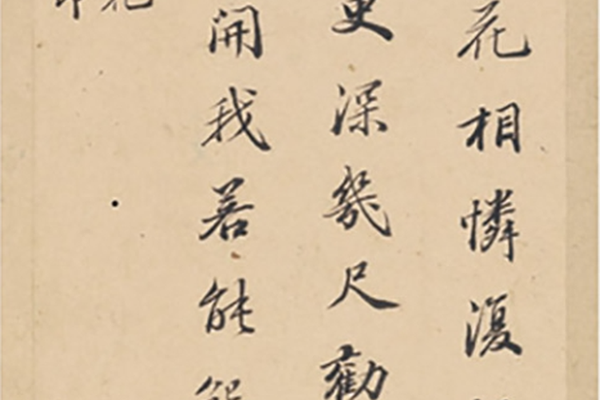 花相憐復
更深幾尺勸
開我若能